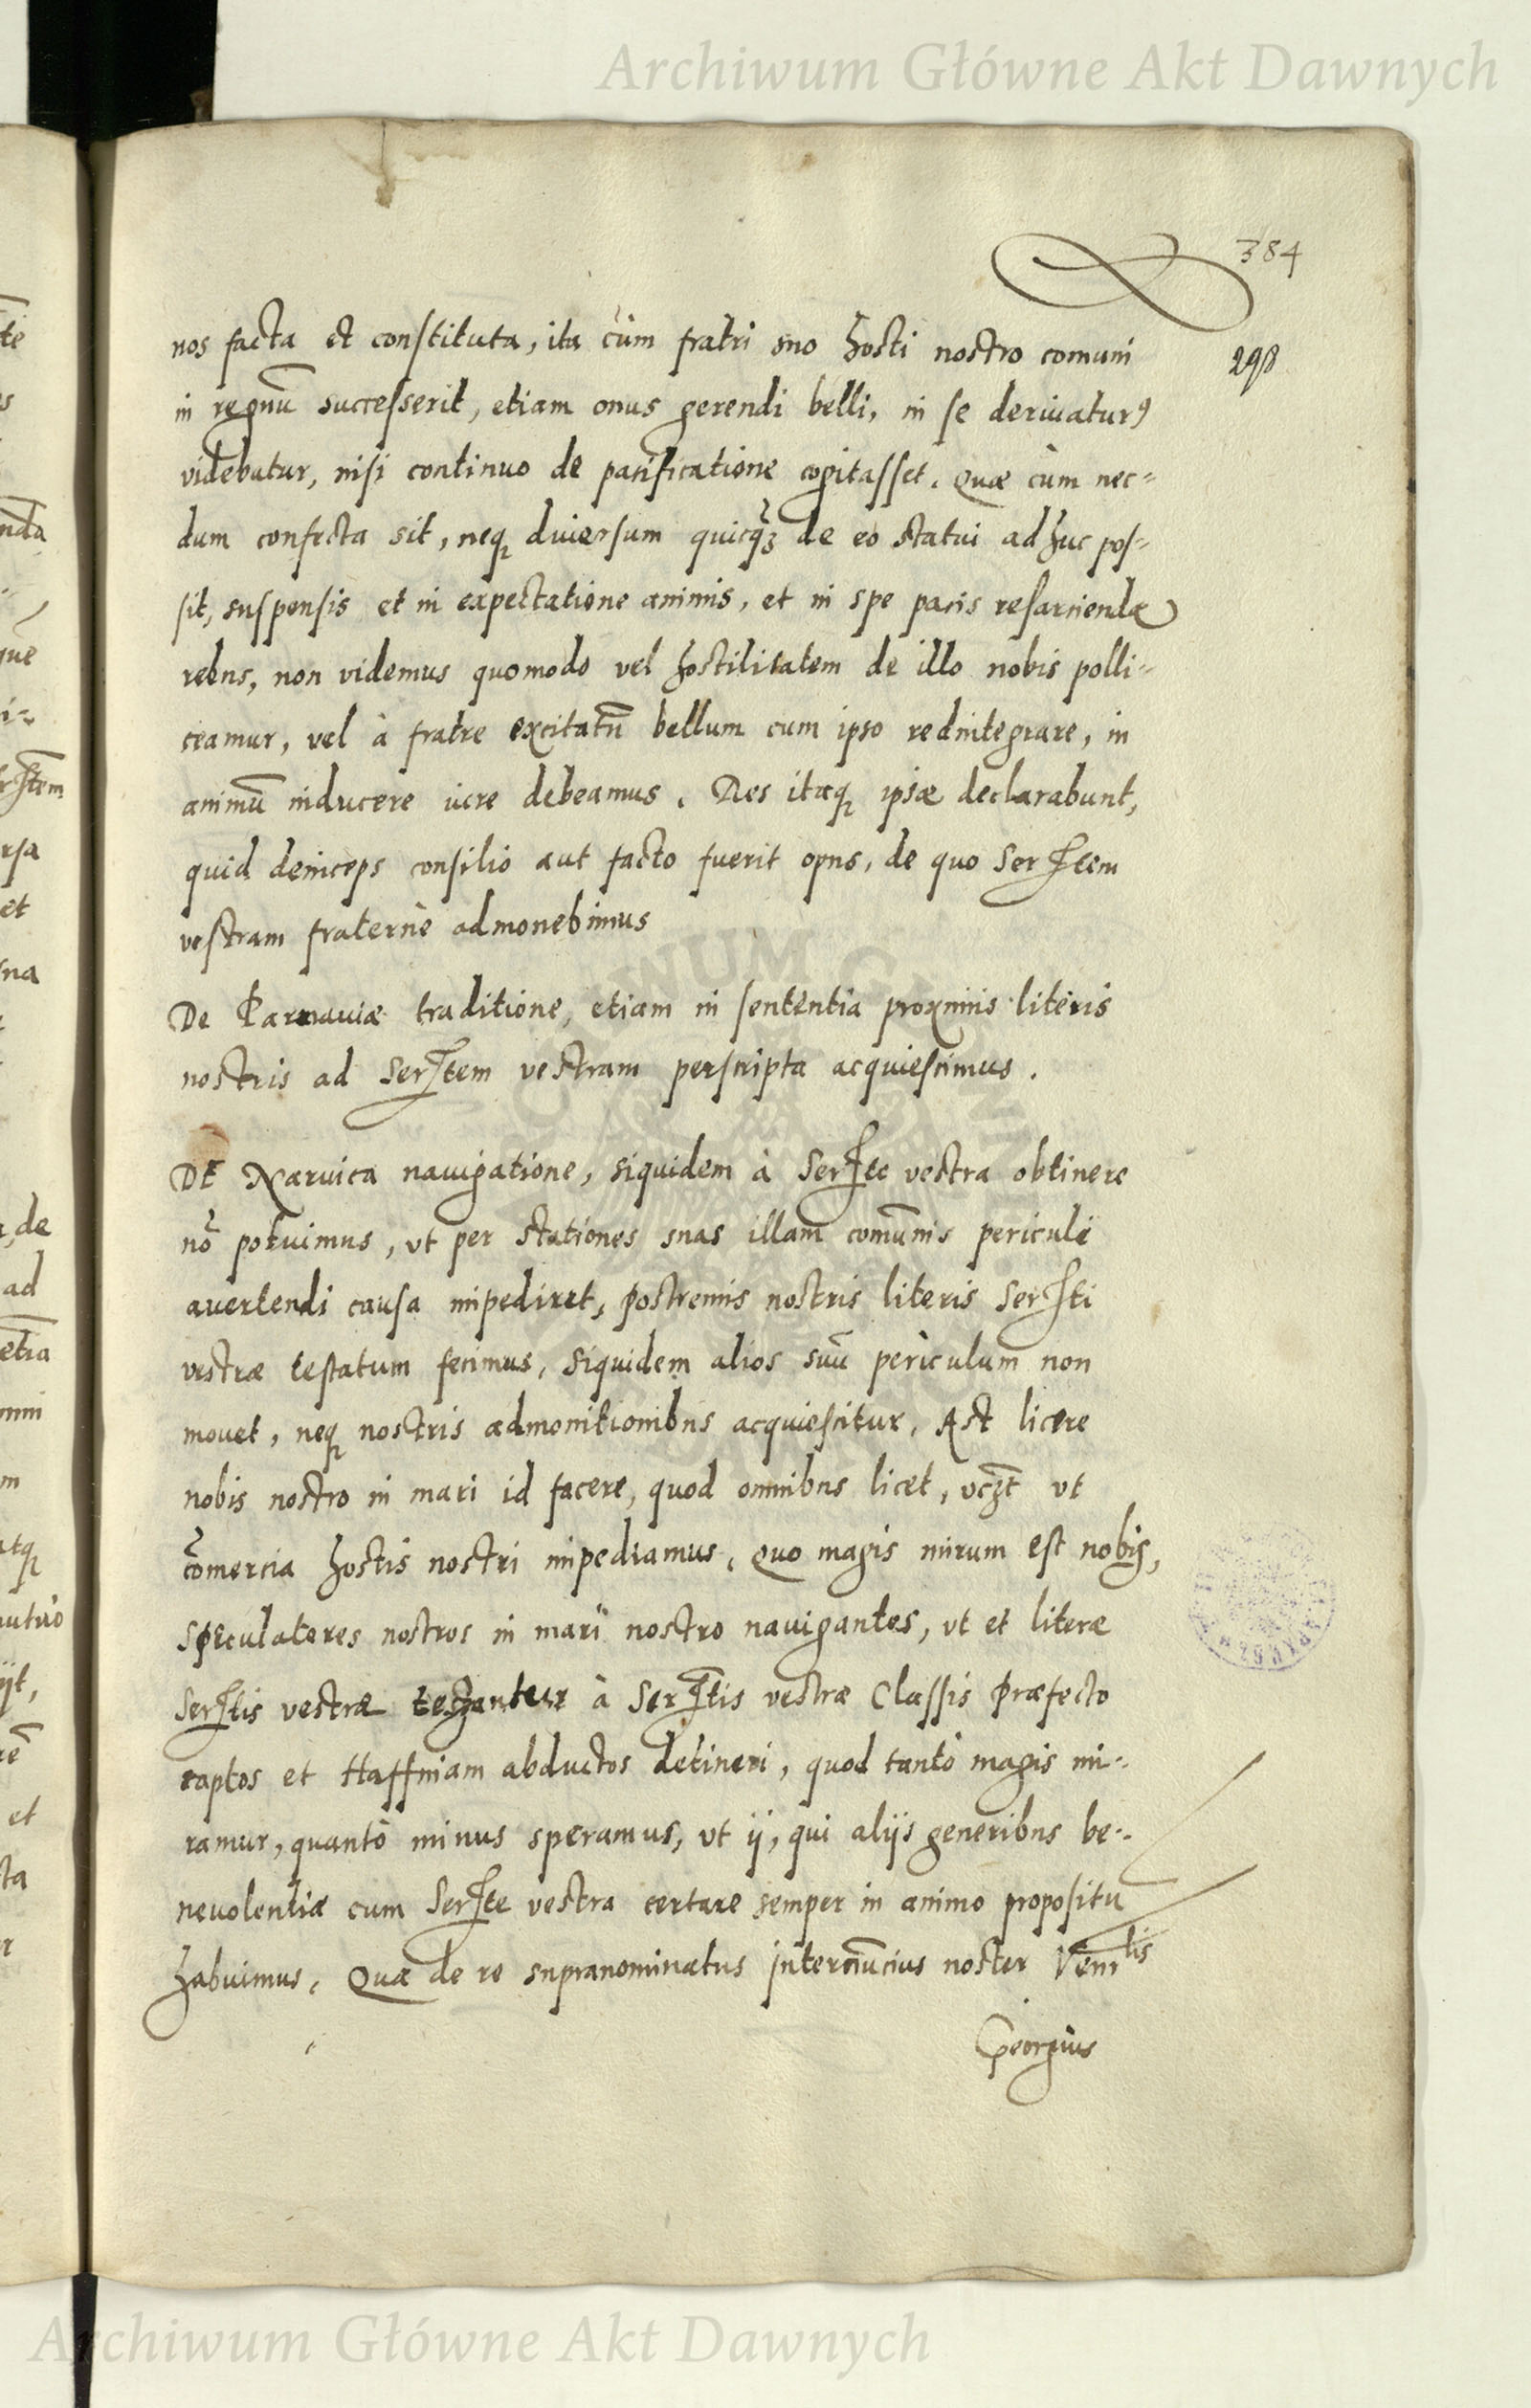 Archiwum Główne Akt Dawnych
384
298
nos facta et constituta, ita cùm fratri suo hosti nostro comuni
in regnū successerit, etiam onus gerendi belli, in se derivaturꝯ
videbatur, nisi continuo de pacificatione cogitasset. Quæ cùm nec=
dum confecta sit, neqꝫ diversum quicqꝫ de eo statui adhuc pos=
sit, suspensis et in expectatione animis, et in spe pacis resarciendæ
rebus, non videmus quomodo vel hostilitatem de illo nobis polli=
ceamur, vel à fratre excitatū bellum cum ipso redintegrare, in
animū inducere iure debeamus. Res itaqꝫ ipsæ declarabunt,
quid deinceps consilio aut facto fuerit opus, de quo Serᵗᵉᵐ
vestram fraternè admonebimus
De Parnaviæ traditione, etiam in sententia proximis literis
nostris ad Serᵗᵉᵐ vestram perscripta acquiescimus.
DE Narvica navigatione, siquidem à Serᵗᵉ vestra obtinere
nō potuimus, ut per stationes suas illam comūnis periculi
avertendi causa impediret, postremis nostris literis Serᵗⁱ
vestræ testatum fecimus, siquidem alios suū periculum non
movet, neqꝫ nostris admonitionibus acquiescitur. Ast licere
nobis nostro in mari id facere, quod omnibus licet, vczt ut
cōmercia hostis nostri impediamus. Quo magis mirum est nobis,
speculatores nostros in mari nostro navigantes, ut et literæ
Serᵗⁱˢ vestræ testantur à Serᵗⁱˢ vestræ Classis præfecto
captos et Haffniam abductos detineri, quod tantò magis mi=
ramur, quantò minus speramus, ut ij, qui alijs generibus be=
nevolentiæ cum Serᵗᵉ vestra certare semper in animo propositū
habuimus. Quæ de re supranominatus internūcius noster Venᵗⁱˢ
Georgius
Archiwum Główne Akt Dawnych